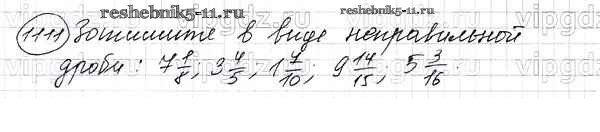 reshebnik5-11.ru reshebnik5-11.ru
1111 Запишите в виде неправильной
дроби: 7 1/8; 3 4/5, 1 7/10; 9 14/15; 5 3/16.